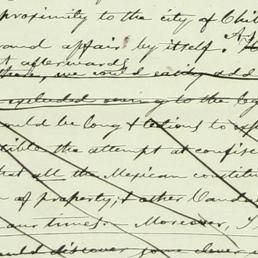 proximity to the city of Chih
and affair by itself. As
afterwards
there, we could easily add
excluded owing to the leg
would be long & tedious to
tible the attempt at confisc
that all the Mexican constitu
of property, & other
our times. Moreover, I
would discover some clever